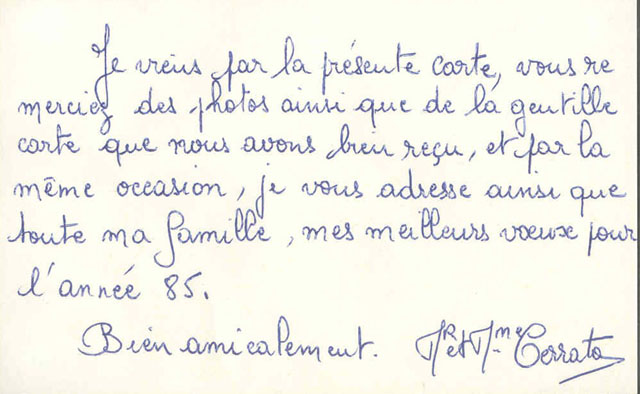 Je viens par la présente carte, vous re
merciez des photos ainsi que de la gentille
carte que nous avons bien reçu, et par la
même occasion, je vous adresse ainsi que
toute ma famille, mes meilleurs vœux pour
l'année 85.
Bien amicalement. Mr et Mme Cerrato